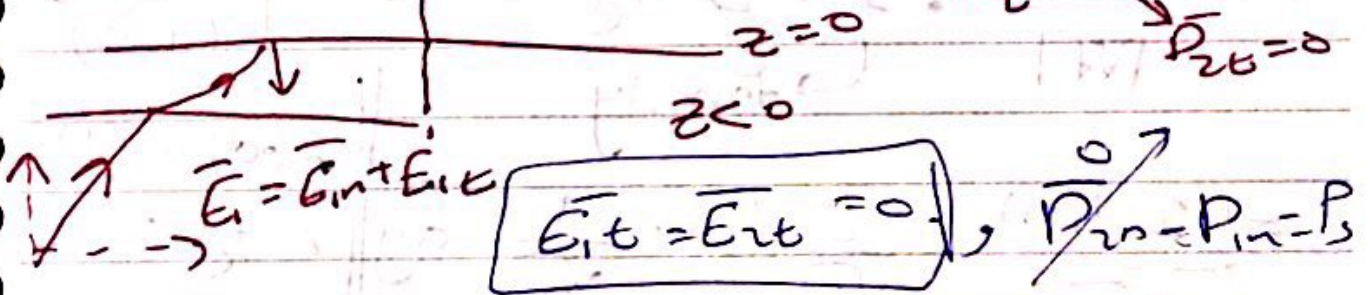 z=0
D̄₂t=0
z<0
Ē₁=Ē₁n+E₁t
Ē₁t=Ē₂t=0, D̄₂n-D₁n=ρs
0